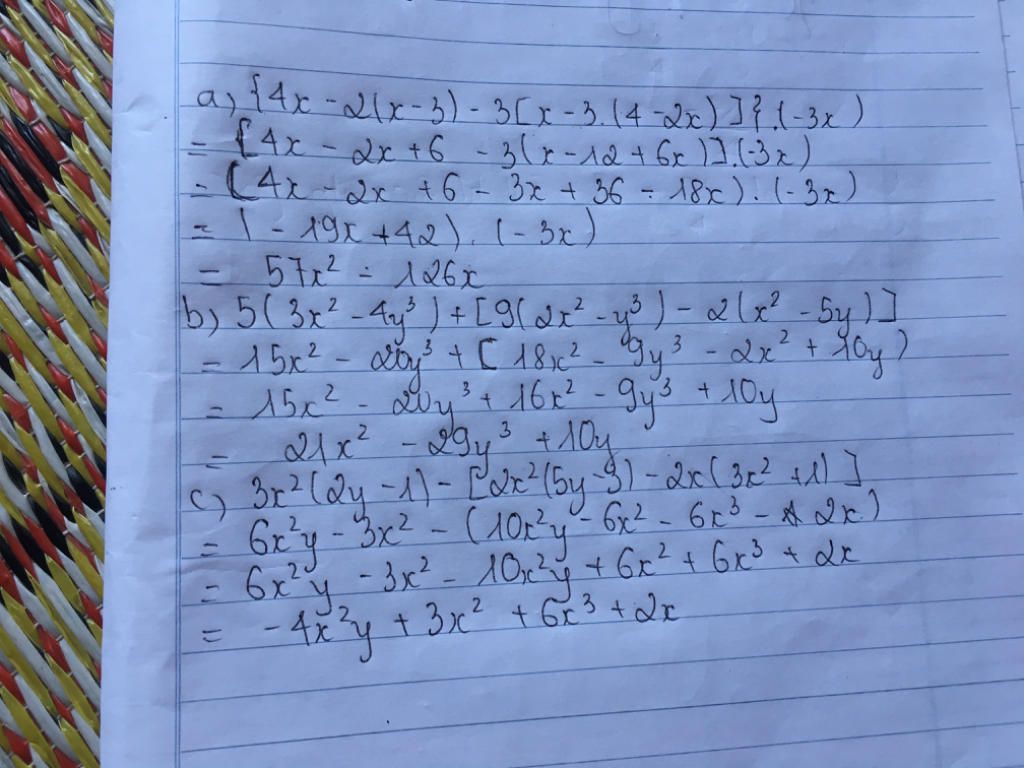 a) {4x - 2(x-3) - 3[x-3.(4-2x)]}.(-3x)
= [4x - 2x+6 - 3(x-12+6x)].(-3x)
= (4x - 2x + 6 - 3x + 36 - 18x).(-3x)
= (-19x+42).(-3x)
= 57x² - 126x
b) 5(3x² - 4y³) + [9(2x² - y³) - 2(x² - 5y)]
= 15x² - 20y³ + [18x² - 9y³ - 2x² + 10y)
= 15x² - 20y³ + 16x² - 9y³ + 10y
= 21x² - 29y³ + 10y
c) 3x²(2y-1) - [2x²(5y-3) - 2x(3x²+1)]
= 6x²y - 3x² - (10x²y - 6x² - 6x³ - 2x)
= 6x²y - 3x² - 10x²y + 6x² + 6x³ + 2x
= -4x²y + 3x² + 6x³ + 2x